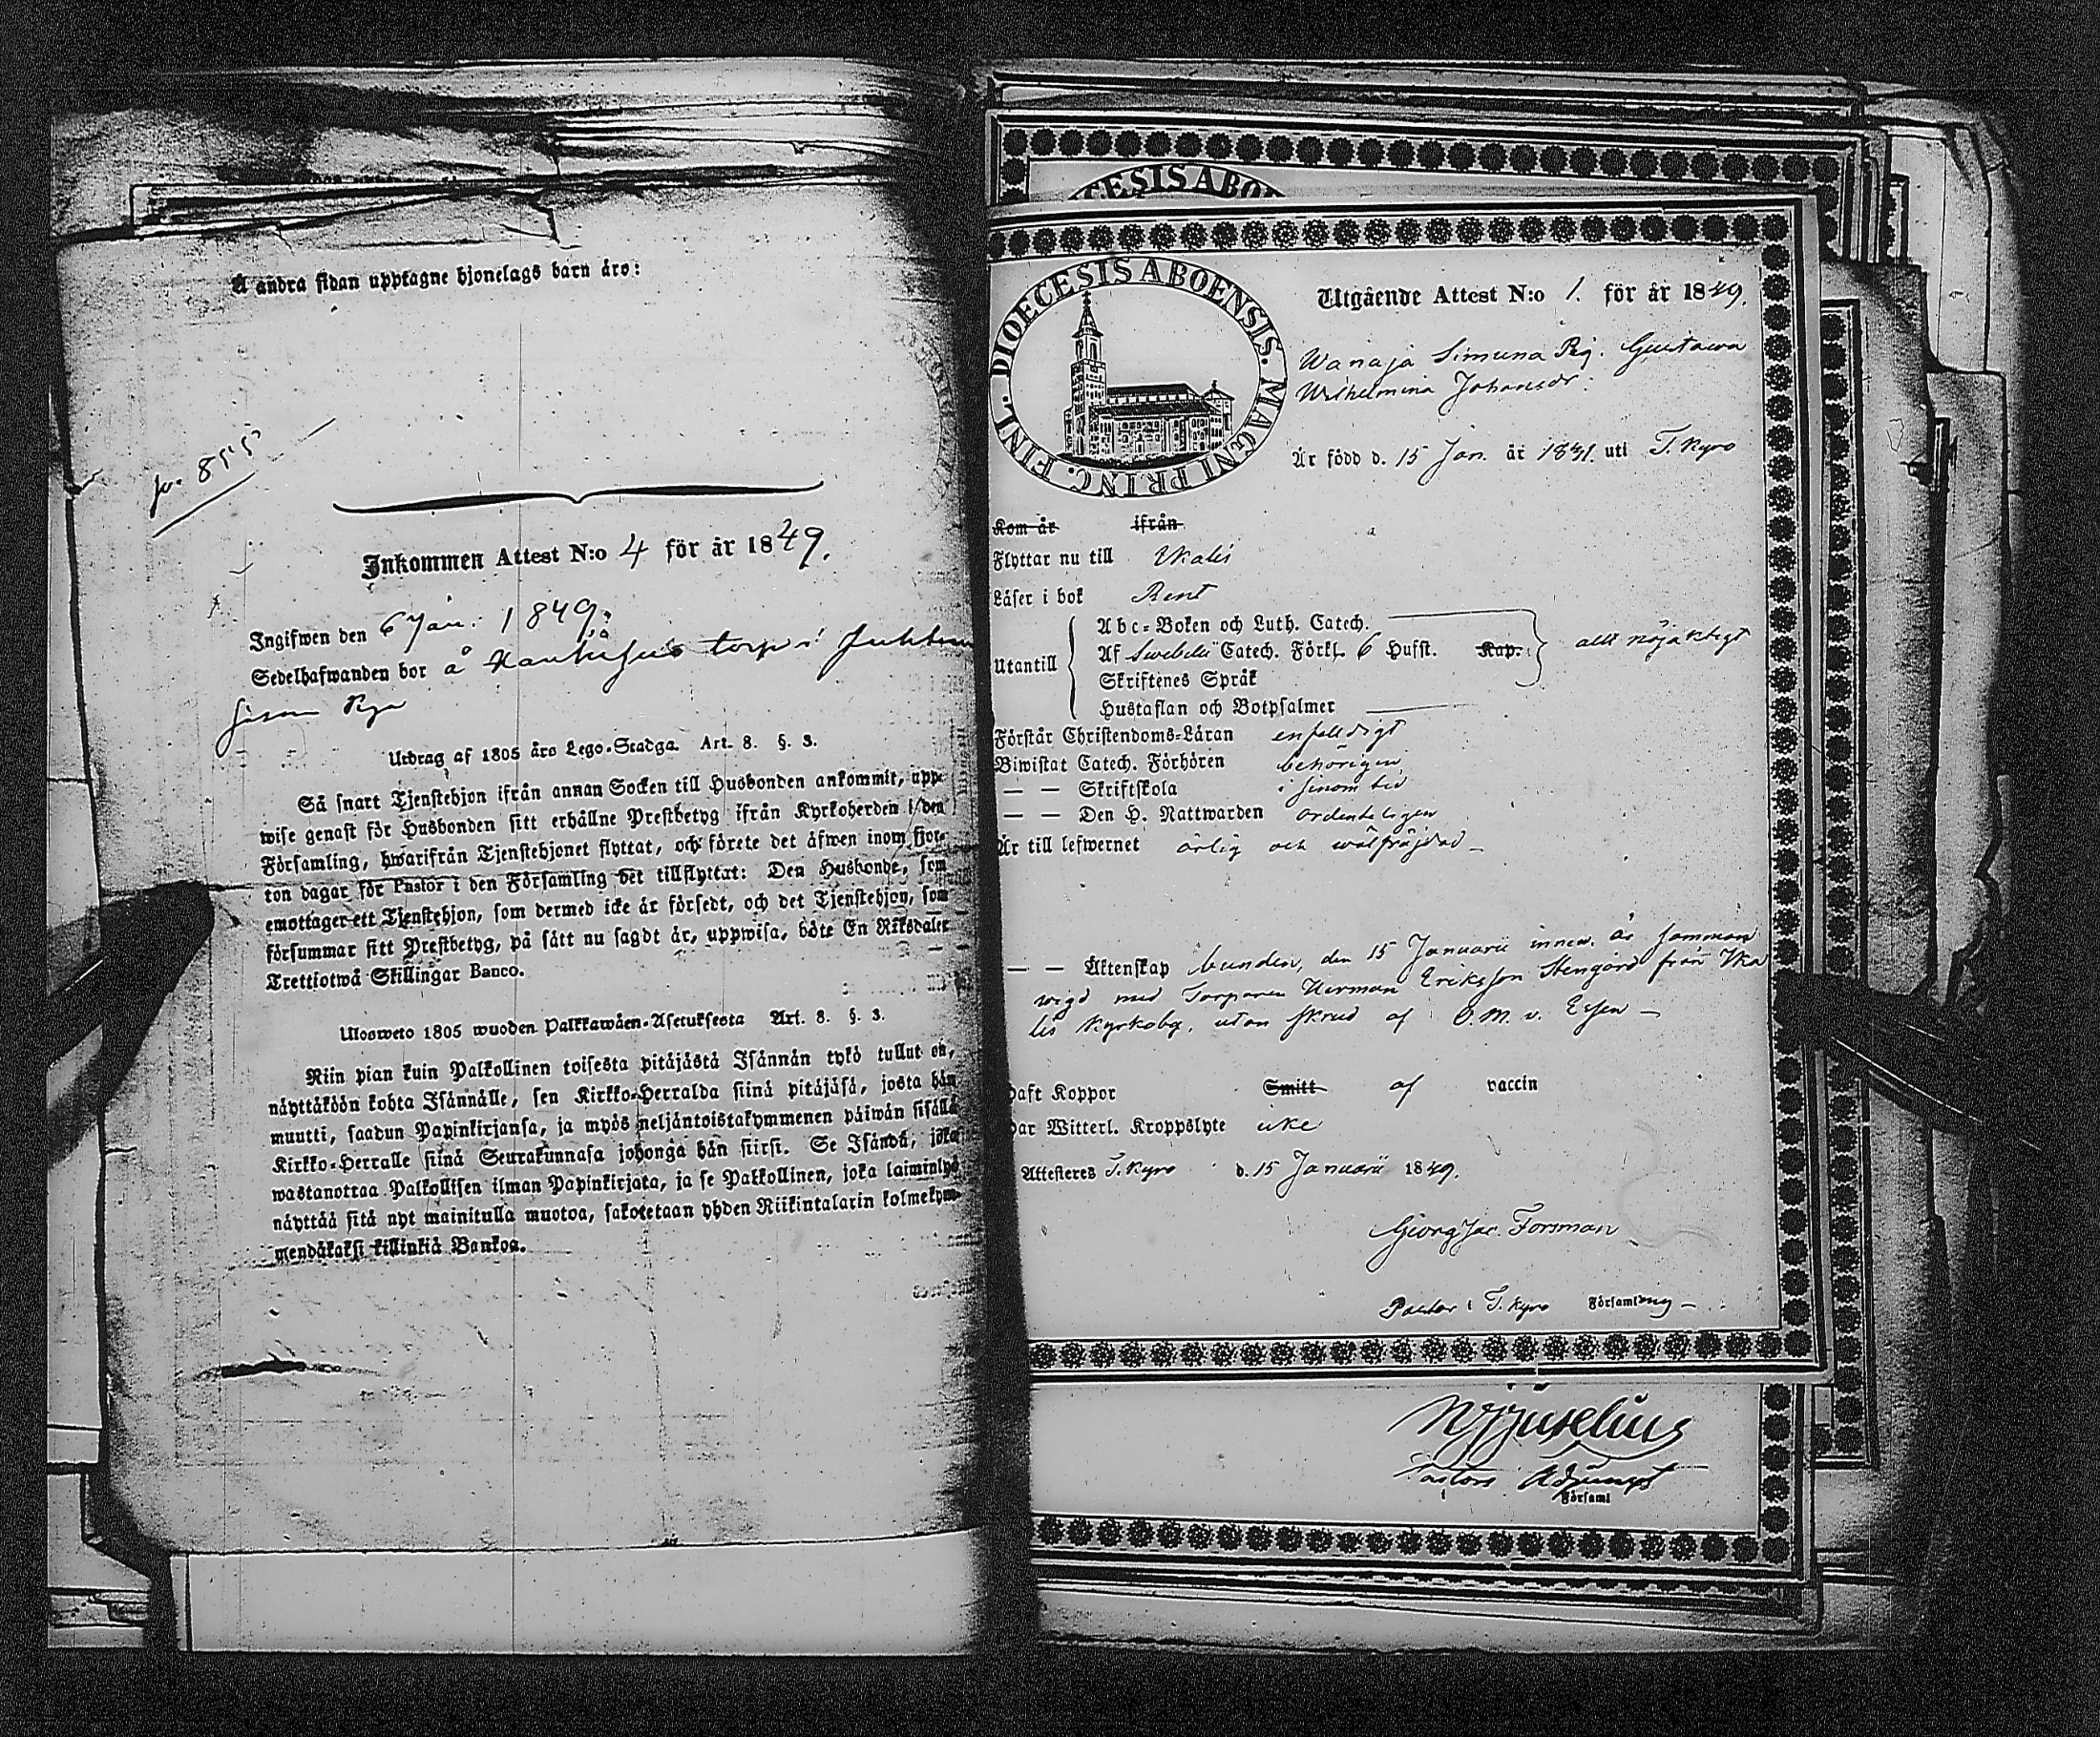 Å andra sidan upptagne hjonelags barn äro:
Inkommen Attest N:o 4 för år 1849.
Ingifwen den 6 Jan. 1849.
Sedelhafwanden bor å torp i
Utdrag af 1805 års Lego-Stadga. Art. 8. §. 3.
Så snart Tjenstehjon ifrån annan Socken till Husbonden ankommit, upp-
wise genast för Husbonden sitt erhållne Prestbetyg ifrån Kyrkoherden i den
Församling, hwarifrån Tjenstehjonet flyttat, och förete det äfwen inom fjor-
ton dagar för Pastor i den Församling det tillflyttat: Den Husbonde, som
emottager ett Tjenstehjon, som dermed icke är försedt, och det Tjenstehjon, som
försummar sitt Prestbetyg, på sätt nu sagdt är, uppwisa, böte En Riksdaler
Trettiotwå Skillingar Banco.
Ulosweto 1805 wuoden Palkkawäen-Asetuksesta Art. 8. §. 3.
Niin pian kuin Palkollinen toisesta pitäjästä Isännän tykö tullut on,
näyttäköön kohta Isännälle, sen Kirkko-Herralda siinä pitäjäsä, josta hän
muutti, saadun Papinkirjansa, ja myös neljäntoistakymmenen päiwän sisällä
Kirkko-Herralle siinä Seurakunnasa johonga hän siirsi. Se Isändä, joka
wastanottaa Palkollisen ilman Papinkirjata, ja se Palkollinen, joka laiminlyö
näyttää sitä nyt mainitulla muotoa, sakotetaan yhden Riikintalarin kolmekym-
mendäkaksi killinkiä Bankoa.
DIOECESIS ABOENSIS. MAGNI PRINC. FINL.
Utgående Attest N:o 1. för år 1849.
Wanaja Simuna Pig. Gustawa
Wilhelmina Johansdr:
Är född d. 15 Jan. år 1831. uti T. Kyro
Kom år ifrån
Flyttar nu till Ikalis
Läser i bok Rent
Utantill
Abc-Boken och Luth. Catech.
Af Swebelii Catech. Förkl. 6 Hufst. Kap. allt nöjaktigt
Skriftenes Språk
Hustaflan och Botpsalmer
Förstår Christendoms-Läran enfaldigt
Biwistat Catech. Förhören behörigen
— — Skriftskola i sinom tid
— — Den H. Nattwarden ordenteligen
Är till lefwernet ärlig och wälfräjdad
— — Äktenskap bunden, den 15 Januarii innew. år samman
wigd med Torparen Herman Eriksson Stengård från Ika
lis Kyrkoby, utan skrud af
Haft Koppor Smitt af vaccin
Har Witterl. Kroppslyte icke
Attesteras T. Kyro d. 15 Januarii 1849.
Georg Jac. Forsman
Pastor i T. Kyro Församling
CESIS ABO
Pastors Adjunct
Församl